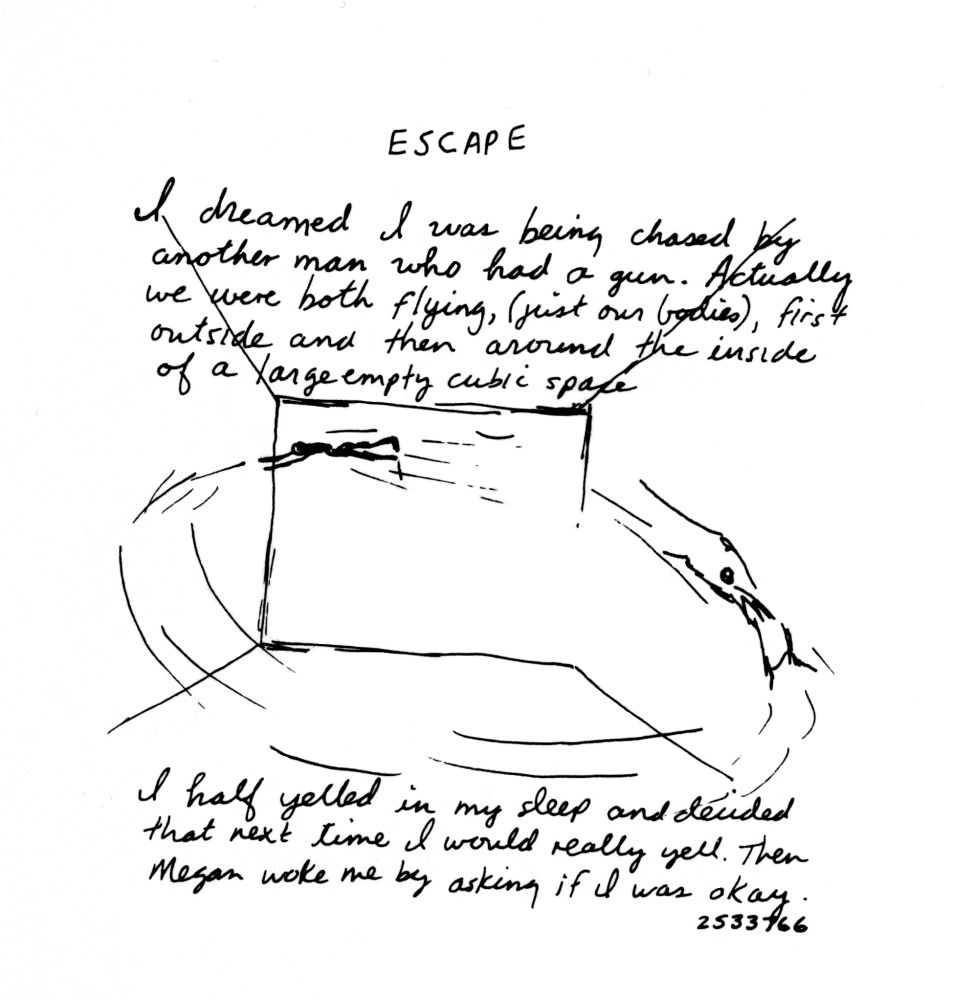 ESCAPE
I dreamed I was being chased by
another man who had a gun. Actually
we were both flying, (just our bodies), first
outside and then around the inside
of a large empty cubic space
I half yelled in my sleep and decided
that next time I would really yell. Then
Megan woke me by asking if I was okay.
2533766